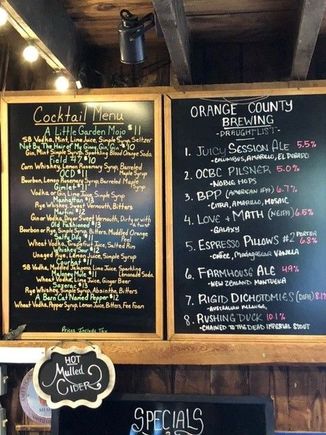 Cocktail Menu
A Little Garden Mojo $11
SB Vodka, Mint, Lime Juice, Simple Syrup, Seltzer
Not By The Hair of My Ginny, Gin, Gin $10
Gin, Mint Simple Syrup, Sparkling Blood Orange Soda
Field 47 $10
Corn Whiskey, Lemon Juice, Rosemary Barreled
Maple Syrup
OCD $11
Bourbon, Lemon, Rosemary Syrup, Barreled Maple
Syrup
Gimlet
Vodka or Gin, Lime Juice, Simple
Manhattan $13
Rye Whiskey, Sweet Vermouth, Bitters
Martini
Gin or Vodka, Dry or Sweet Vermouth, Dirty or with
Old Fashioned
Bourbon or Rye, Simple Syrup, Bitters, Muddled Orange
Peel
Salty Dog $11
Wheat Vodka, Grapefruit Juice, Salted Rim
Whiskey Sour $12
Unaged Rye, Lemon Juice, Simple Syrup
$11
SB Vodka, Muddled Jalapeno, Lime Juice, Sparkling
Lemonade Soda
Mule $11
Wheat Vodka, Lime Juice, Ginger Beer
Sazerac
Rye Whiskey, Simple Syrup, Absinthe, Bitters
A Barn Cat Named Pepper $12
Wheat Vodka, Pepper Syrup, Lemon Juice, Bitters, Fee Foam
Prices Include Tax
Orange County
Brewing
-Draught List-
1. Juicy Session Ale 5.5%
-Columbus, Amarillo, El Dorado
2. OCBC Pilsner 5.0%
-Noble Hops
3. BPP (American IPA) 6.7%
-Citra, Amarillo, Mosaic
4. Love + Math (NEIPA) 6.5%
-Galaxy
5. Espresso Pillows #2 Porter
6.8%
-Coffee, Madagascar Vanilla
6. Farmhouse Ale 4.9%
-New Zealand Montueka
7. Rigid Dichotomies (DIPA) 8.1%
8. Rushing Duck 10.1%
-Chained to the Dead Imperial Stout
Hot
Mulled
Cider
Specials